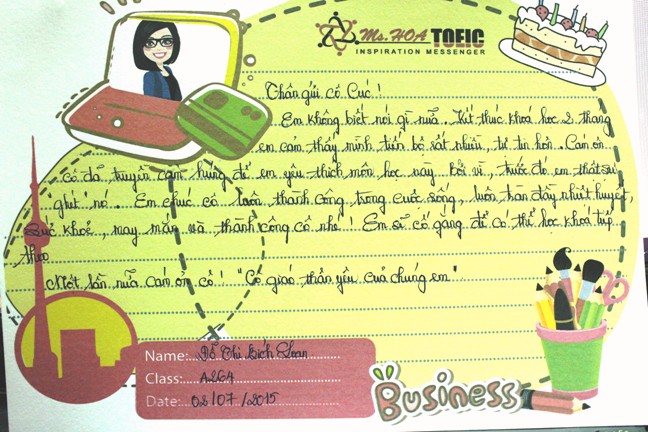 Ms. HOA TOEIC
INSPIRATION MESSENGER
Thân gửi cô Cúc!
Em không biết nói gì nữa. Kết thúc khoá học 2 tháng
em cảm thấy mình tiến bộ rất nhiều, tự tin hơn. Cám ơn
cô đã truyền cảm hứng để em yêu thích môn học này bởi vì, trước đó em thật sự
ghét nó. Em chúc cô luôn thành công trong cuộc sống, luôn tràn đầy nhiệt huyết,
sức khoẻ, may mắn và thành công cô nhé! Em sẽ cố gắng để có thể học khoá tiếp
theo
Một lần nữa cám ơn cô! "Cô giáo thân yêu của chúng em"
Name: Đỗ Thị Bích Loan
Class: A264
Date: 02/07/2015
Business